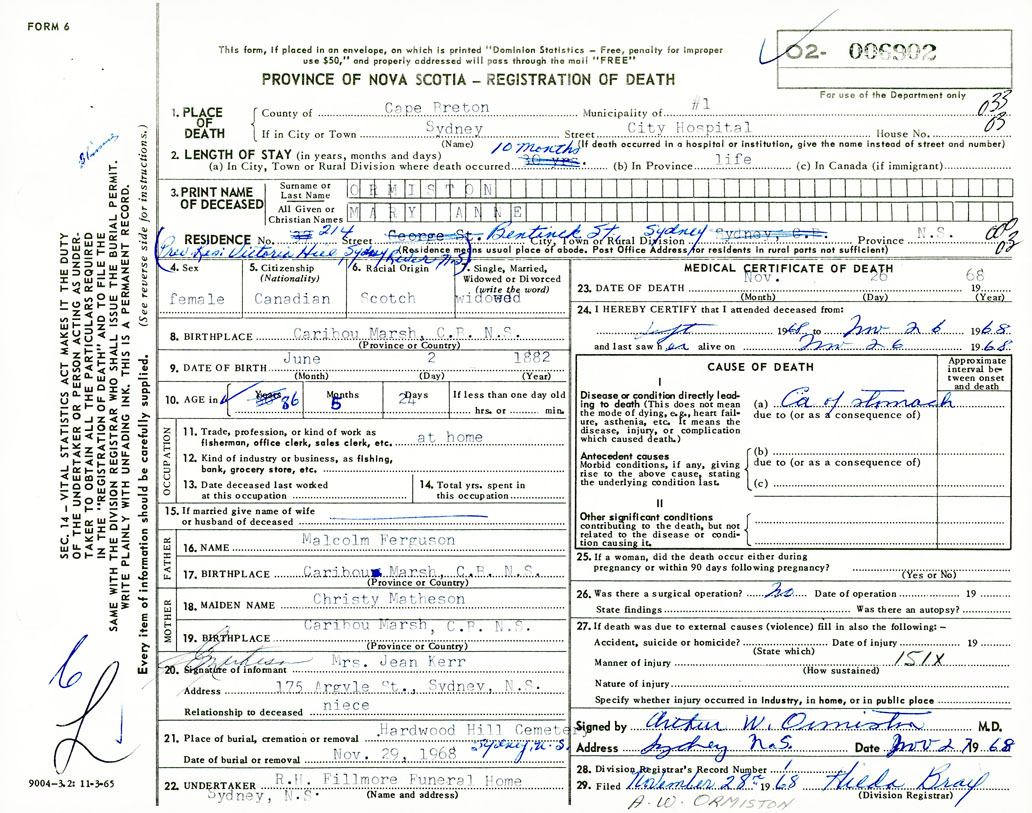 FORM 6
This form, if placed in an envelope, on which is printed "Dominion Statistics – Free, penalty for improper
use $50," and properly addressed will pass through the mail "FREE"
PROVINCE OF NOVA SCOTIA – REGISTRATION OF DEATH
02- 006902
For use of the Department only
033
03
1. PLACE OF DEATH
County of Cape Breton Municipality of #1
If in City or Town Sydney Street City Hospital House No.
(Name) (If death occurred in a hospital or institution, give the name instead of street and number)
2. LENGTH OF STAY (in years, months and days) 10 months
(a) In City, Town or Rural Division where death occurred 30 yrs. (b) In Province life (c) In Canada (if immigrant)
3. PRINT NAME OF DECEASED
Surname or Last Name ORMISTON
All Given or Christian Names MARY ANNE
RESIDENCE No. 214 Street George St. Bentinck St. City, Town or Rural Division Sydney Sydney, C.B. Province N.S.
Prev. Res. Victoria Hill Sydney River N.S. (Residence means usual place of abode. Post Office Address for residents in rural parts not sufficient)
003
03
4. Sex
female
5. Citizenship (Nationality)
Canadian
6. Racial Origin
Scotch
7. Single, Married, Widowed or Divorced (write the word)
widowed
8. BIRTHPLACE Caribou Marsh, C.B. N.S.
(Province or Country)
9. DATE OF BIRTH June 2 1882
(Month) (Day) (Year)
10. AGE in Years 86 Months 5 Days 24 If less than one day old
hrs. or min.
OCCUPATION
11. Trade, profession, or kind of work as fisherman, office clerk, sales clerk, etc. at home
12. Kind of industry or business, as fishing, bank, grocery store, etc.
13. Date deceased last worked at this occupation
14. Total yrs. spent in this occupation
15. If married give name of wife or husband of deceased
FATHER
16. NAME Malcolm Ferguson
17. BIRTHPLACE Caribou Marsh, C.B. N.S.
(Province or Country)
MOTHER
18. MAIDEN NAME Christy Matheson
19. BIRTHPLACE Caribou Marsh, C.B. N.S.
(Province or Country)
20. Signature of informant Mrs. Jean Kerr
Address 175 Argyle St., Sydney, N.S.
Relationship to deceased niece
21. Place of burial, cremation or removal Hardwood Hill Cemeter
Date of burial or removal Nov. 29, 1968 Sydney, N.S.
22. UNDERTAKER R.H. Fillmore Funeral Home
Sydney, N.S. (Name and address)
MEDICAL CERTIFICATE OF DEATH
23. DATE OF DEATH Nov. 26 19 68
(Month) (Day) (Year)
24. I HEREBY CERTIFY that I attended deceased from:
Sept 1968 to Nov 26 1968
and last saw her alive on Nov 26 1968
CAUSE OF DEATH
Approximate interval between onset and death
I
Disease or condition directly leading to death (This does not mean the mode of dying, e.g., heart failure, asthenia, etc. It means the disease, injury, or complication which caused death.)
(a) Ca of stomach
due to (or as a consequence of)
Antecedent causes
Morbid conditions, if any, giving rise to the above cause, stating the underlying condition last.
(b)
due to (or as a consequence of)
(c)
II
Other significant conditions contributing to the death, but not related to the disease or condition causing it.
25. If a woman, did the death occur either during pregnancy or within 90 days following pregnancy?
(Yes or No)
26. Was there a surgical operation? no Date of operation 19
State findings Was there an autopsy?
27. If death was due to external causes (violence) fill in also the following:–
Accident, suicide or homicide? Date of injury 19
(State which)
Manner of injury 151X
(How sustained)
Nature of injury
Specify whether injury occurred in Industry, in home, or in public place
Signed by Arthur W. Ormiston M.D.
Address Sydney N.S. Date Nov 27 1968
28. Division Registrar's Record Number
29. Filed November 28th 1968 Hilda Bray
(Division Registrar)
A.W. ORMISTON
SEC. 14 – VITAL STATISTICS ACT MAKES IT THE DUTY
OF THE UNDERTAKER OR PERSON ACTING AS UNDER-
TAKER TO OBTAIN ALL THE PARTICULARS REQUIRED
IN THE "REGISTRATION OF DEATH" AND TO FILE THE
SAME WITH THE DIVISION REGISTRAR WHO SHALL ISSUE THE BURIAL PERMIT.
WRITE PLAINLY WITH UNFADING INK. THIS IS A PERMANENT RECORD.
Every item of information should be carefully supplied. (See reverse side for instructions.)
6
9004–3.2: 11-3-65